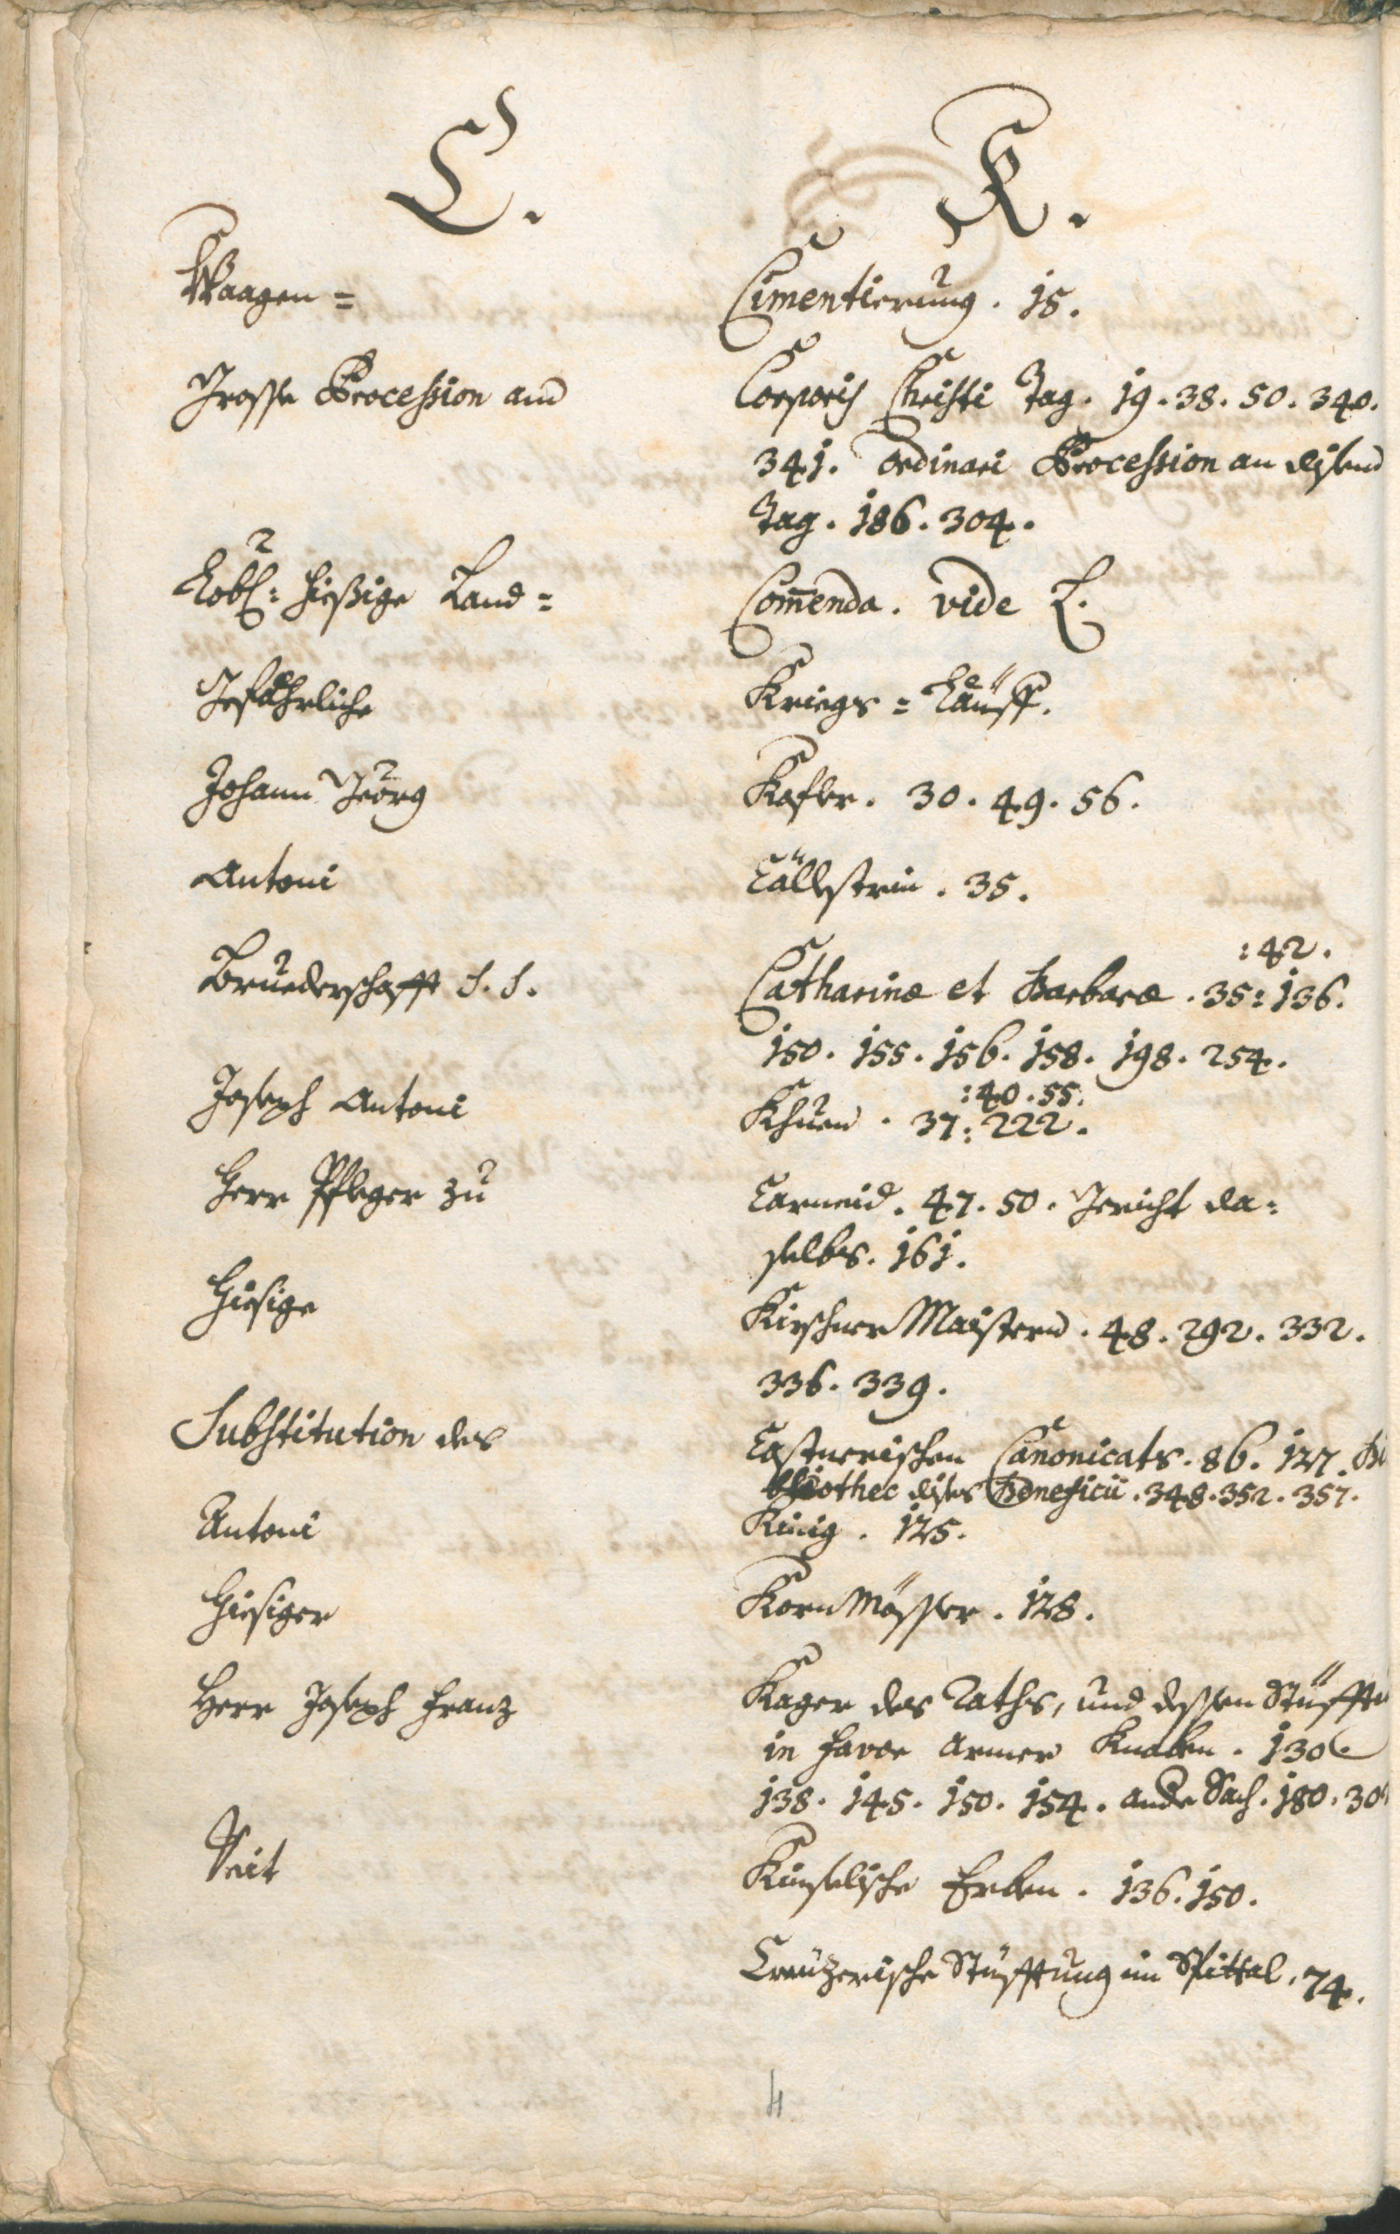 C. K.
Waagen= Cimentierung. 15.
Grosse Procession am Corporis Christi Tag. 19. 38. 50. 340.
341. ordinari Procession an disem
Tag. 186. 304.
Lobl: hießige Land= Com̄enda. vide L.
Gefährliche Kriegs=Läuff.
Johann Georg Kofler. 30. 49. 56.
Antoni Cällestrin. 35.
:42.
Bruederschafft S. S. Catharinæ et Barbaræ. 35: 136.
150. 155. 156. 158. 198. 254.
:40. 55.
Joseph Antoni Khuen. 37: 222.
Herr Pfleger zu Carneid. 47. 50. Gericht da=
selbs. 161.
Hiesige Kirschner Maistern. 48. 292. 332.
336. 339.
Substitution des Castnerischen Canonicats. 86. 127. Bi
bliothec dises Beneficii. 348. 352. 357.
Antoni Kinig. 125.
Hiesiger Korn Mässer. 128.
Herr Joseph Franz Kager des Raths, und dessen Stüfften
in favor armer Knaben. 130.
138. 145. 150. 154. ande Sach. 180. 30
Veit Künselische Erben. 136. 150.
Creützerische Stüfftung im Spittal. 74.
4